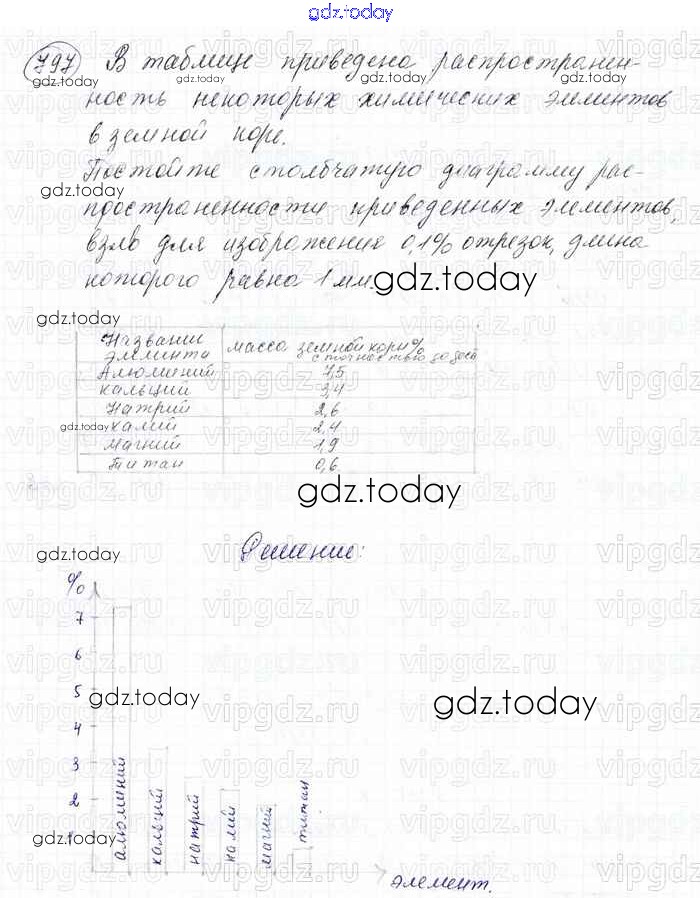 gdz.today
797 В таблице приведена распространен-
ность некоторых химических элементов
в земной коре.
Постойте столбчатую диаграмму рас-
пространенности приведенных элементов,
взяв для изображения 0,1% отрезок, длина
которого равна 1 мм.
gdz.today
Название элемента масса земной кори%
с точностью до
Алюминий 7,5
кальций 3,4
Натрий 2,6
калий 2,4
магний 1,9
Титан 0,6
gdz.today
Решение:
%
7
6
5
4
3
2
1
алюминий
кальций
натрий
калий
магний
титан
элемент.
gdz.today
vipgdz.ru